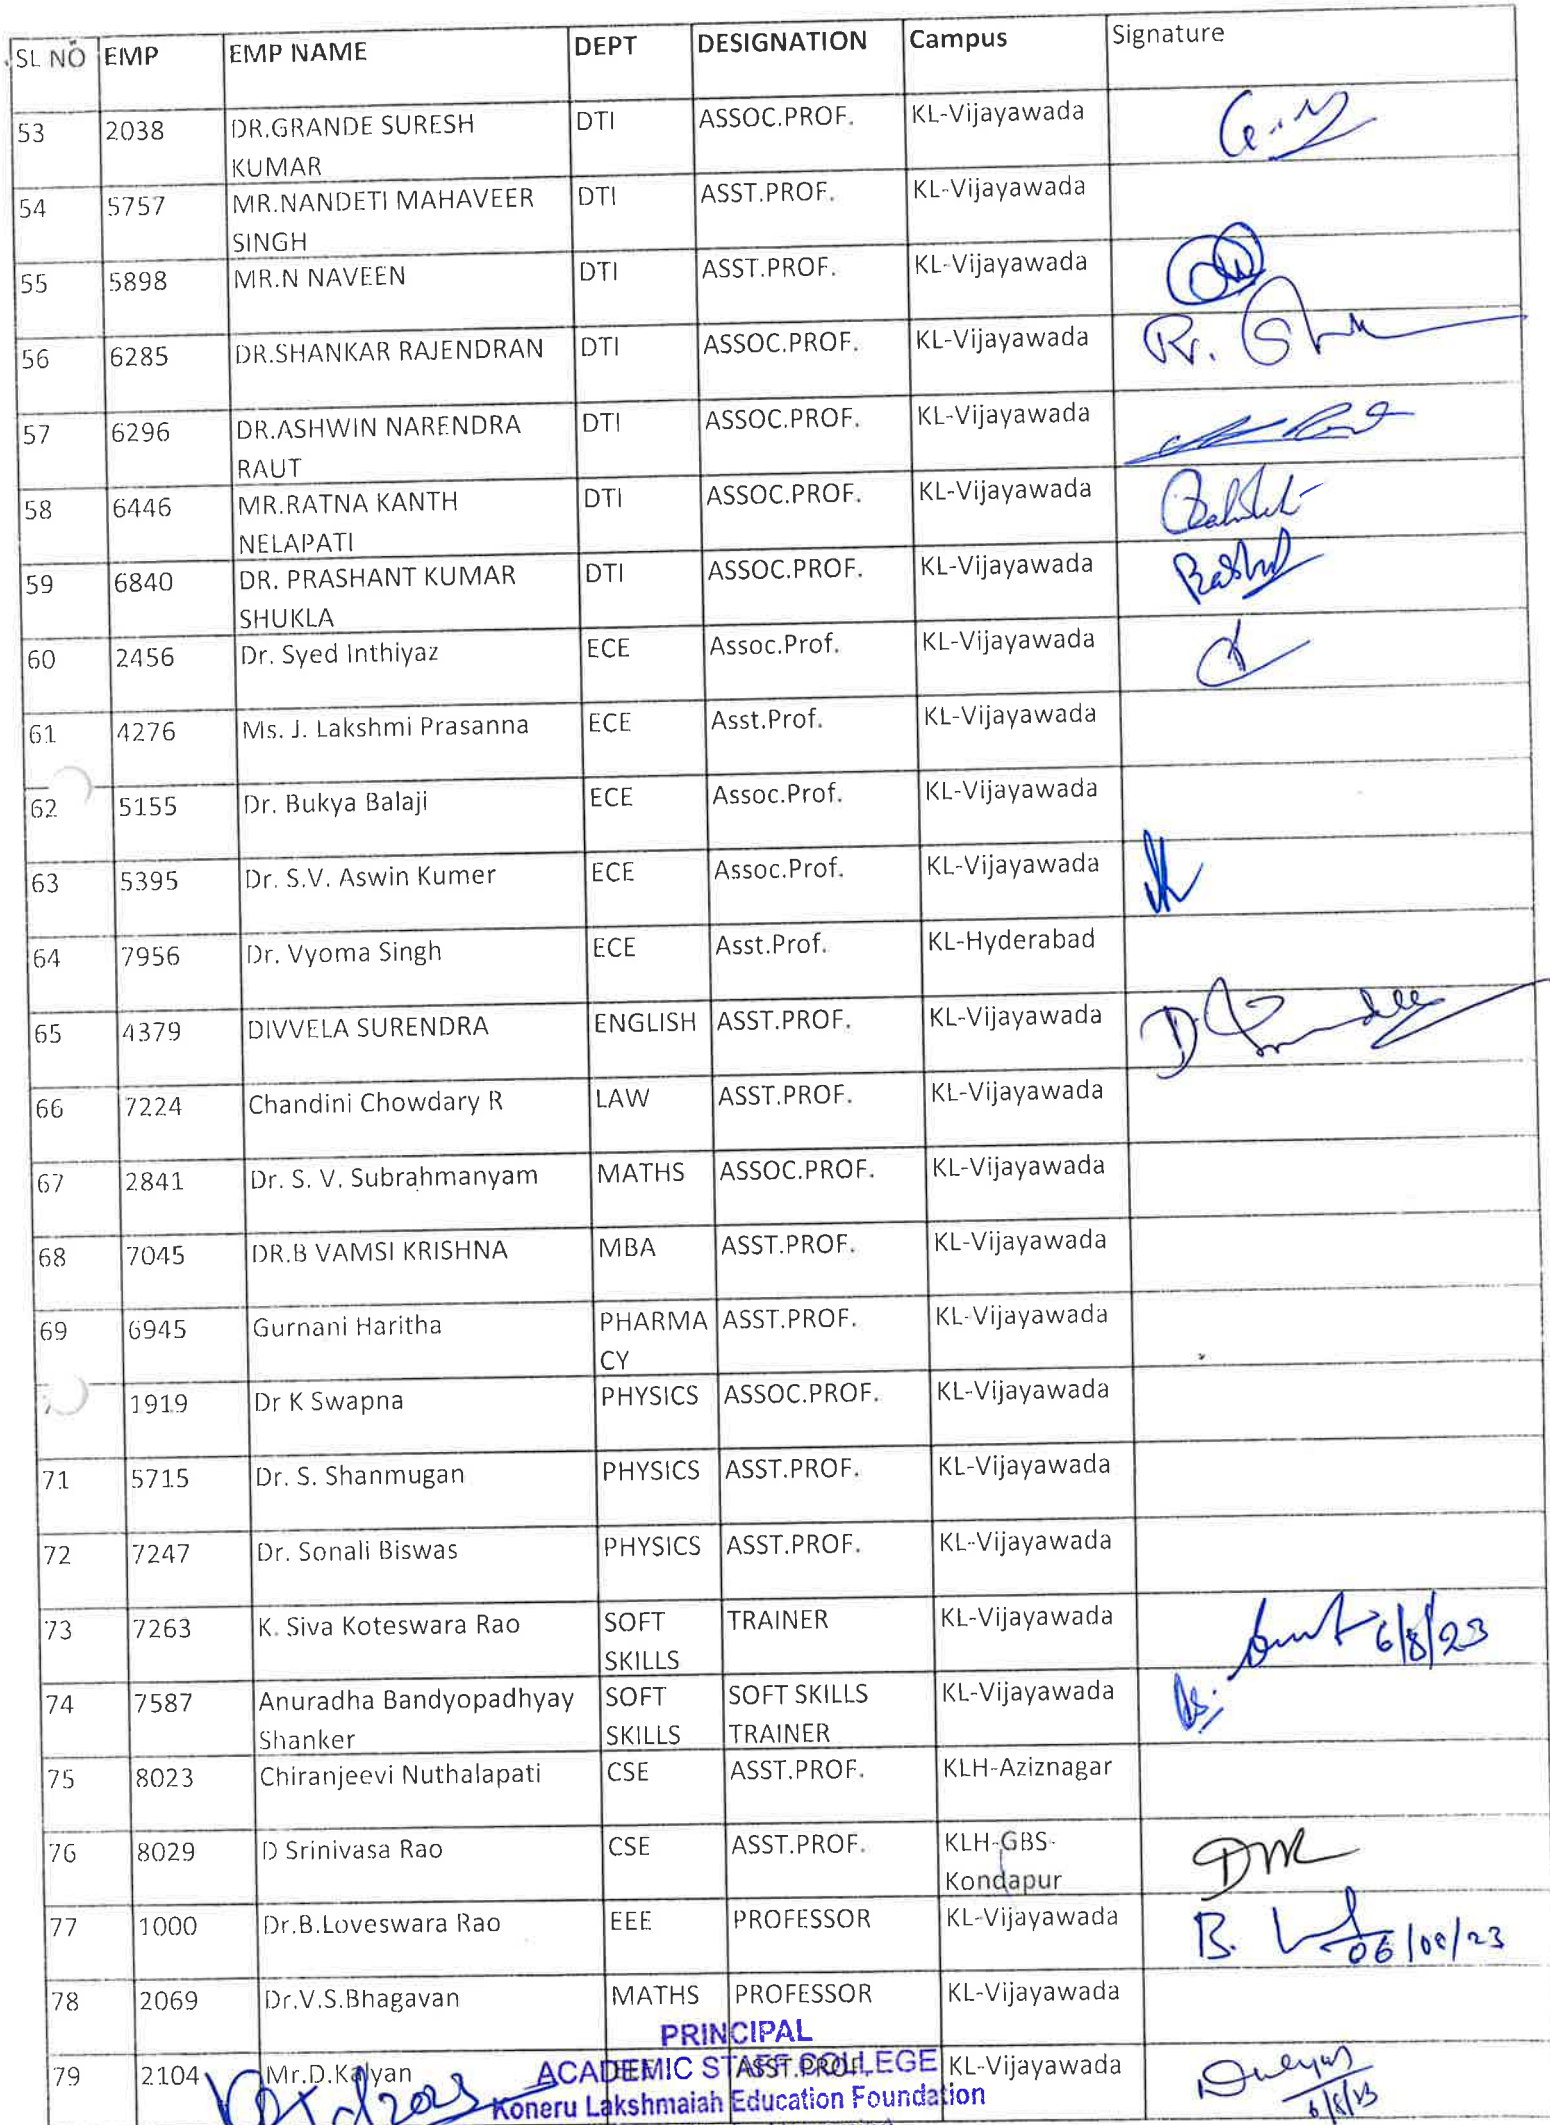 SL NO EMP EMP NAME DEPT DESIGNATION Campus Signature
53 2038 DR.GRANDE SURESH DTI ASSOC.PROF. KL-Vijayawada
KUMAR
54 5757 MR.NANDETI MAHAVEER DTI ASST.PROF. KL-Vijayawada
SINGH
55 5898 MR.N NAVEEN DTI ASST.PROF. KL-Vijayawada
56 6285 DR.SHANKAR RAJENDRAN DTI ASSOC.PROF. KL-Vijayawada
57 6296 DR.ASHWIN NARENDRA DTI ASSOC.PROF. KL-Vijayawada
RAUT
58 6446 MR.RATNA KANTH DTI ASSOC.PROF. KL-Vijayawada
NELAPATI
59 6840 DR. PRASHANT KUMAR DTI ASSOC.PROF. KL-Vijayawada
SHUKLA
60 2456 Dr. Syed Inthiyaz ECE Assoc.Prof. KL-Vijayawada
61 4276 Ms. J. Lakshmi Prasanna ECE Asst.Prof. KL-Vijayawada
62 5155 Dr. Bukya Balaji ECE Assoc.Prof. KL-Vijayawada
63 5395 Dr. S.V. Aswin Kumer ECE Assoc.Prof. KL-Vijayawada
64 7956 Dr. Vyoma Singh ECE Asst.Prof. KL-Hyderabad
65 4379 DIVVELA SURENDRA ENGLISH ASST.PROF. KL-Vijayawada
66 7224 Chandini Chowdary R LAW ASST.PROF. KL-Vijayawada
67 2841 Dr. S. V. Subrahmanyam MATHS ASSOC.PROF. KL-Vijayawada
68 7045 DR.B VAMSI KRISHNA MBA ASST.PROF. KL-Vijayawada
69 6945 Gurnani Haritha PHARMA ASST.PROF. KL-Vijayawada
CY
1919 Dr K Swapna PHYSICS ASSOC.PROF. KL-Vijayawada
71 5715 Dr. S. Shanmugan PHYSICS ASST.PROF. KL-Vijayawada
72 7247 Dr. Sonali Biswas PHYSICS ASST.PROF. KL-Vijayawada
73 7263 K. Siva Koteswara Rao SOFT TRAINER KL-Vijayawada 6/8/23
SKILLS
74 7587 Anuradha Bandyopadhyay SOFT SOFT SKILLS KL-Vijayawada
Shanker SKILLS TRAINER
75 8023 Chiranjeevi Nuthalapati CSE ASST.PROF. KLH-Aziznagar
76 8029 D Srinivasa Rao CSE ASST.PROF. KLH-GBS-
Kondapur
77 1000 Dr.B.Loveswara Rao EEE PROFESSOR KL-Vijayawada B. 06/08/23
78 2069 Dr.V.S.Bhagavan MATHS PROFESSOR KL-Vijayawada
PRINCIPAL
79 2104 Mr.D.Kalyan ASST.PROF. KL-Vijayawada
ACADEMIC STAFF COLLEGE
Koneru Lakshmaiah Education Foundation
6/8/23